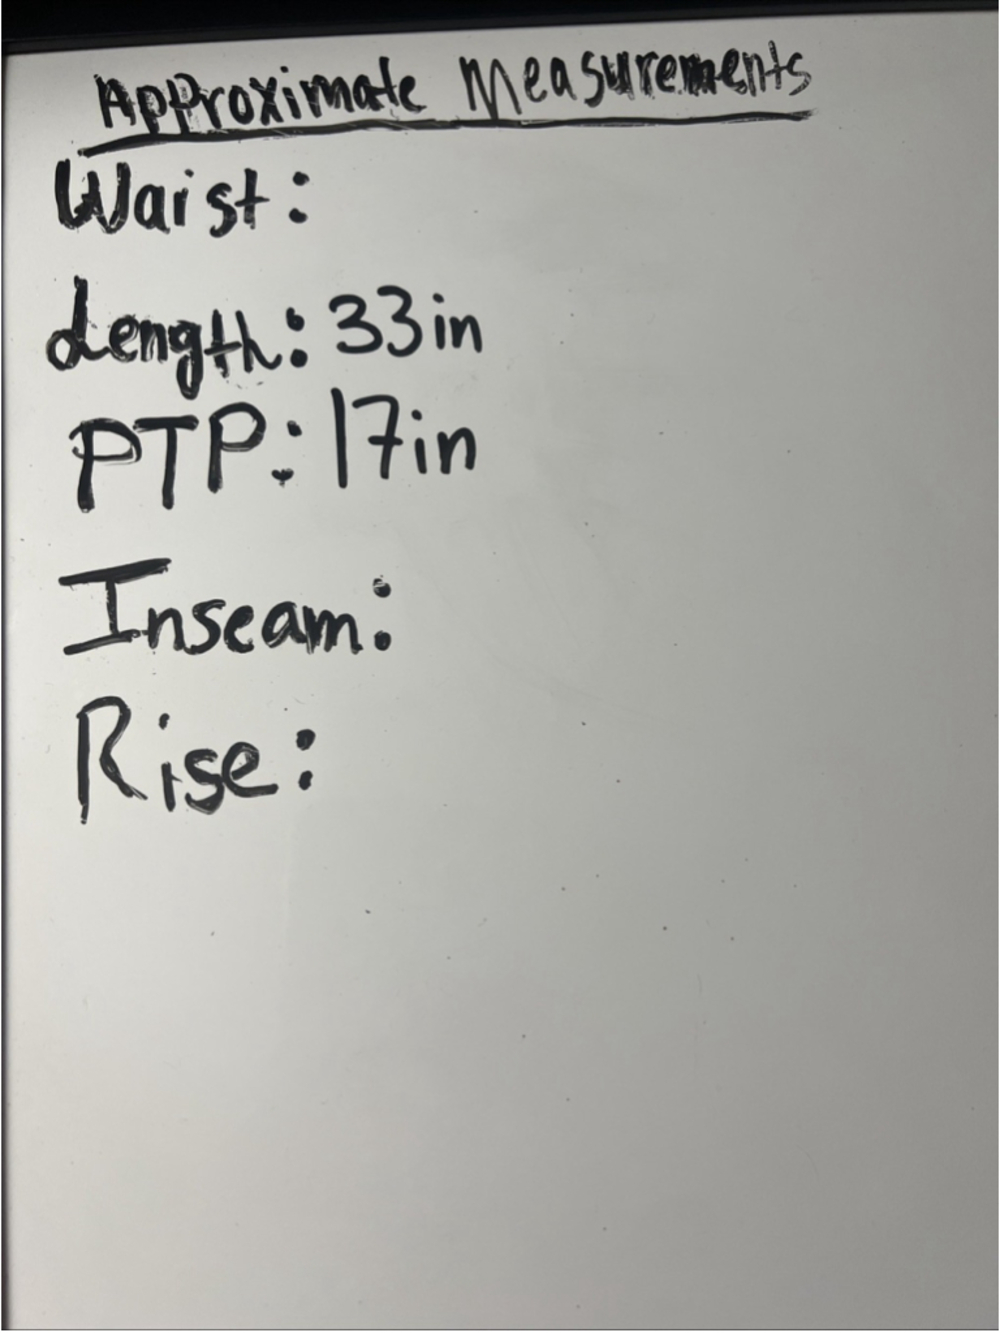 Approximate Measurements
Waist:
Length: 33in
PTP: 17in
Inseam:
Rise: